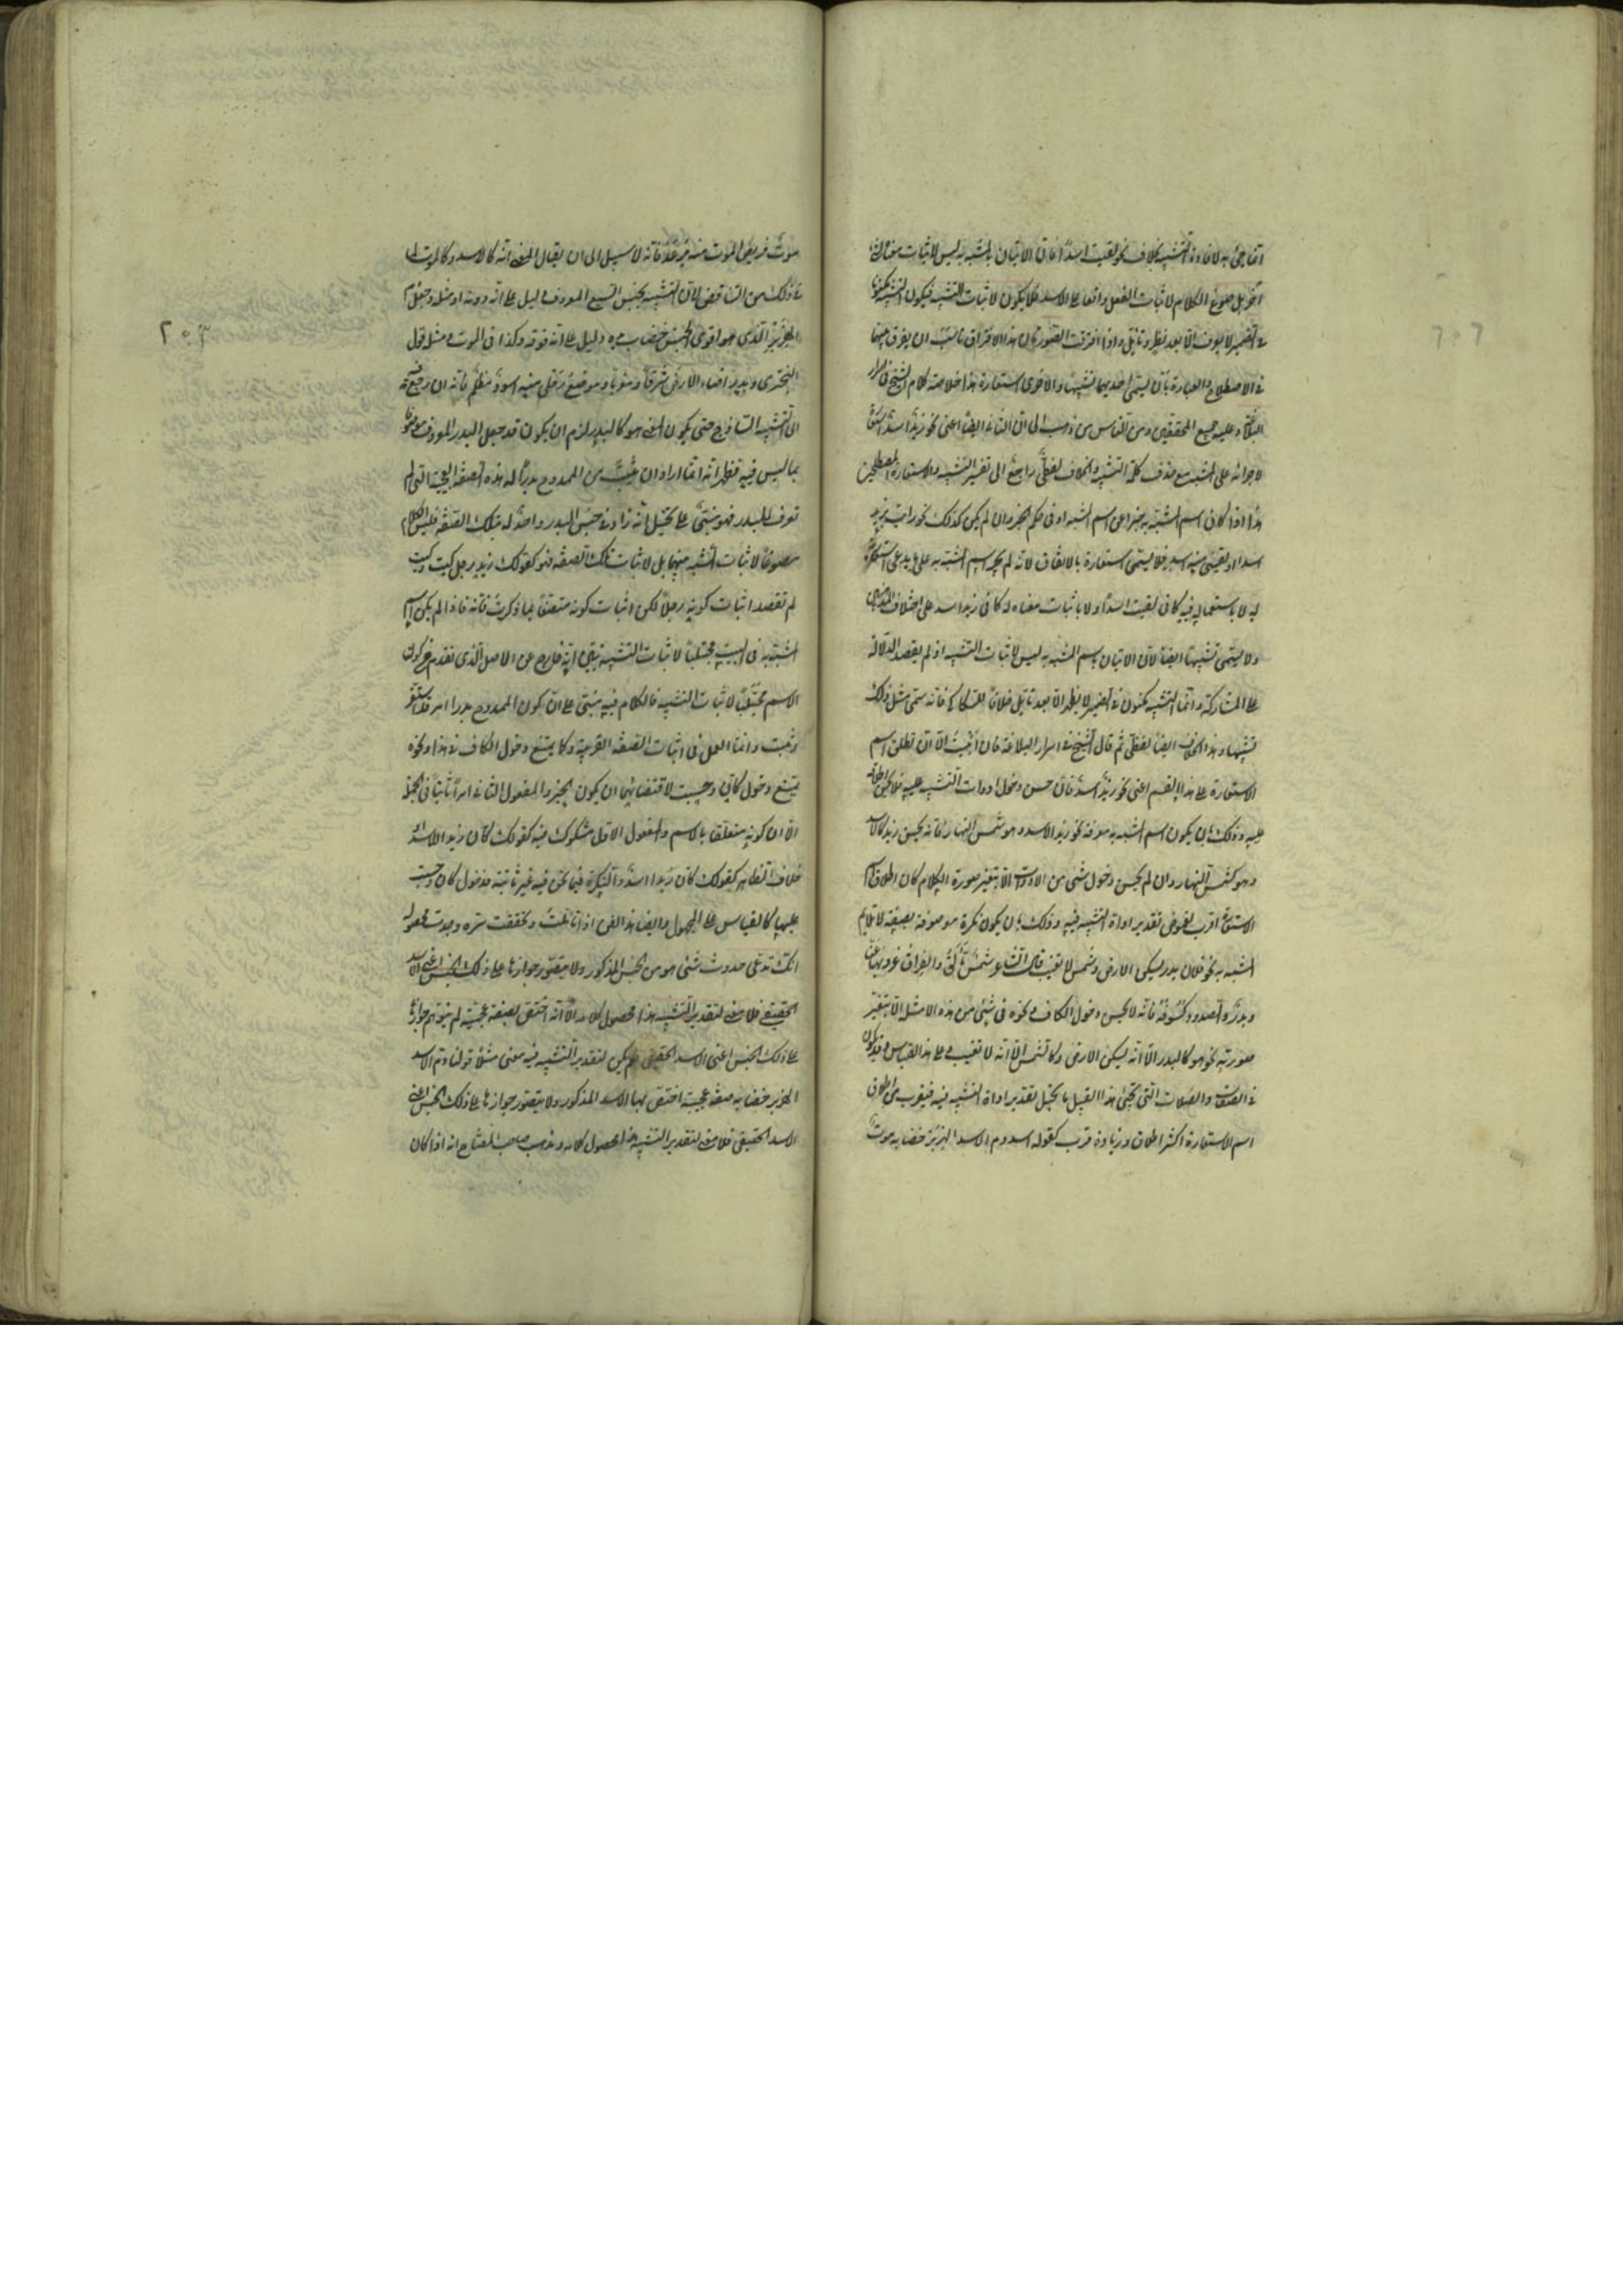 انما جئ به لافادة التشبيه بخلاف نحو لقيت اسدا فان الاتيان بالمشبه به ليس لاثبات معناه لشئ
آخر بل صوغ الكلام لاثبات الفعل واقعا على الاسد فلا يكون لاثبات التشبيه فيكون التشبيه مكنونا
فى الضمير لا يعرف الا بعد نظر وتأمل واذا افترقت الصورتان هذا الافتراق ناسب ان يفرق بينهما
فى الاصطلاح والعبارة بان يسمى احديهما تشبيها والاخرى استعارة هذا خلاصة كلام الشيخ فى اسرار
البلاغة وعليه جميع المحققين ومن الناس من ذهب الى ان الثانى ايضا اعنى نحو زيد اسد استعارة
لاجرائه على المشبه مع حذف كلمة التشبيه والخلاف لفظى راجع الى تفسير التشبيه والاستعارة المصطلحين
هذا اذا كان اسم المشبه به خبرا عن اسم المشبه او فى حكم الخبر وان لم يكن كذلك نحو رايت بزيد
اسدا ولقينى منه اسد فلا يسمى استعارة بالاتفاق لانه لم يجر اسم المشبه به على ما يدعى استعارته
له لا باستعماله فيه كما فى لقيت اسدا ولا باثبات معناه له كما فى زيد اسد على اختلاف المذهبين
ولا يسمى تشبيها ايضا لان الاتيان باسم المشبه به ليس لاثبات التشبيه اذ لم يقصد الدلالة
على المشاركة وانما التشبيه مكنون فى الضمير لا يظهر الا بعد تأمل خلافا للسكاكى فانه يسمى مثل ذلك
تشبيها وهذا الخلاف ايضا لفظى ثم قال الشيخ فى اسرار البلاغة فان ابيت الا ان تطلق اسم
الاستعارة على هذا القسم اعنى نحو زيد اسد فان حسن دخول ادوات التشبيه عليه فلا يحسن اطلاقه
عليه وذلك بان يكون اسم المشبه به معرفة نحو زيد الاسد وهو شمس النهار فانه يحسن زيد كالاسد
وهو كشمس النهار وان لم يحسن دخول شئ من الادوات الا بتغيير صورة الكلام كان اطلاق اسم
الاستعارة اقرب لغموض تقدير اداة التشبيه فيه وذلك بان يكون نكرة موصوفة بصفة لا تلايم
المشبه به نحو فلان بدر يسكن الارض وشمس لا تغيب قال الشاعر شمس تألق والفراق غروبها عنا
وبدر والصدود كسوفه فانه لا يحسن دخول الكاف ونحوه فى شئ من هذه الامثلة الا بتغيير
صورته نحو هو كالبدر الا انه يسكن الارض وكالشمس الا انه لا تغيب وعلى هذا القياس وقد يكون
فى الصفات والصلات التى تجئ فى هذا القبيل ما يحيل تقدير اداة التشبيه فيه فيقرب من اطلاق
اسم الاستعارة اكثر اطلاق وزيادة قرب كقوله اسد دم الاسد الهزبر خضابه موت
موت فريص الموت منه يرعد فانه لا سبيل الى ان يقال المعنى انه كالاسد وكالموت لما
فى ذلك من التناقض لان التشبيه بجنس السبع المعروف دليل على انه دونه او مثله وجعل دم
الهزبر الذى هو اقوى الجنس خضاب يده دليل على انه فوقه وكذا فى الموت ومثل قول
البحترى وبدر اضاء الارض شرقا ومغربا وموضع رحلى منه اسود مظلم فانه ان رجع فيه
الى التشبيه الساذج حتى يكون المعنى هو كالبدر لزم ان يكون قد جعل البدر المعروف موصوفا
بما ليس فيه فظهر انه انما اراد ان يثبت من الممدوح بدرا له هذه الصفة العجيبة التى لم
تعرف للبدر فهو مبنى على تخيل انه زاد فى جنس البدر واحد له تلك الصفة فليس الكلام
مصوغا لاثبات الشبه بينهما بل لاثبات تلك الصفة فهو كقولك زيد رجل كيت وكيت
لم تقصد اثبات كونه رجلا لكن اثبات كونه متصفا بما ذكرت فانه فاذا لم يكن اسم
المشبه به فى البيت مجتلبا لاثبات التشبيه تبين انه خارج عن الاصل الذى تقدم من كون
الاسم مجتلبا لاثبات التشبيه فالكلام فيه مبنى على ان كون الممدوح بدرا امر قد استقر
وثبت وانما العمل فى اثبات الصفة الغريبة وكما يمتنع دخول الكاف فى هذا ونحوه
يمتنع دخول كأن وحسبت لاقتضائهما ان يكون الخبر والمفعول الثانى امرا ثابتا فى الجملة
الا ان كونه متعلقا بالاسم والمفعول الاول مشكوك فيه كقولك كأن زيدا الاسد او
خلاف الظاهر كقولك كأن زيدا اسد والنكرة فيما نحن فيه غير ثابتة فدخول كأن وحسبت
عليها كالقياس على المجهول وايضا هذا الفن اذا تأملت وحققت سره وجدت محصوله
انك تدعى حدوث شئ هو من الجنس المذكور ولا يتصور جوازها على ذلك الجنس اعنى الاسد
الحقيقى فلا معنى لتقدير التشبيه هذا محصول كلامه الا انه اختص بصفة عجيبة لم يتوهم جوازها
على ذلك الجنس اعنى الاسد الحقيقى فلم يكن لتقدير التشبيه فيه معنى مثلا قولنا دم الاسد
الهزبر خضابه صفة عجيبة اختص بها الاسد المذكور ولا يتصور جوازها على ذلك الجنس اعنى
الاسد الحقيقى فلا معنى لتقدير التشبيه هذا محصول كلامه وذهب صاحب المفتاح انه اذا كان